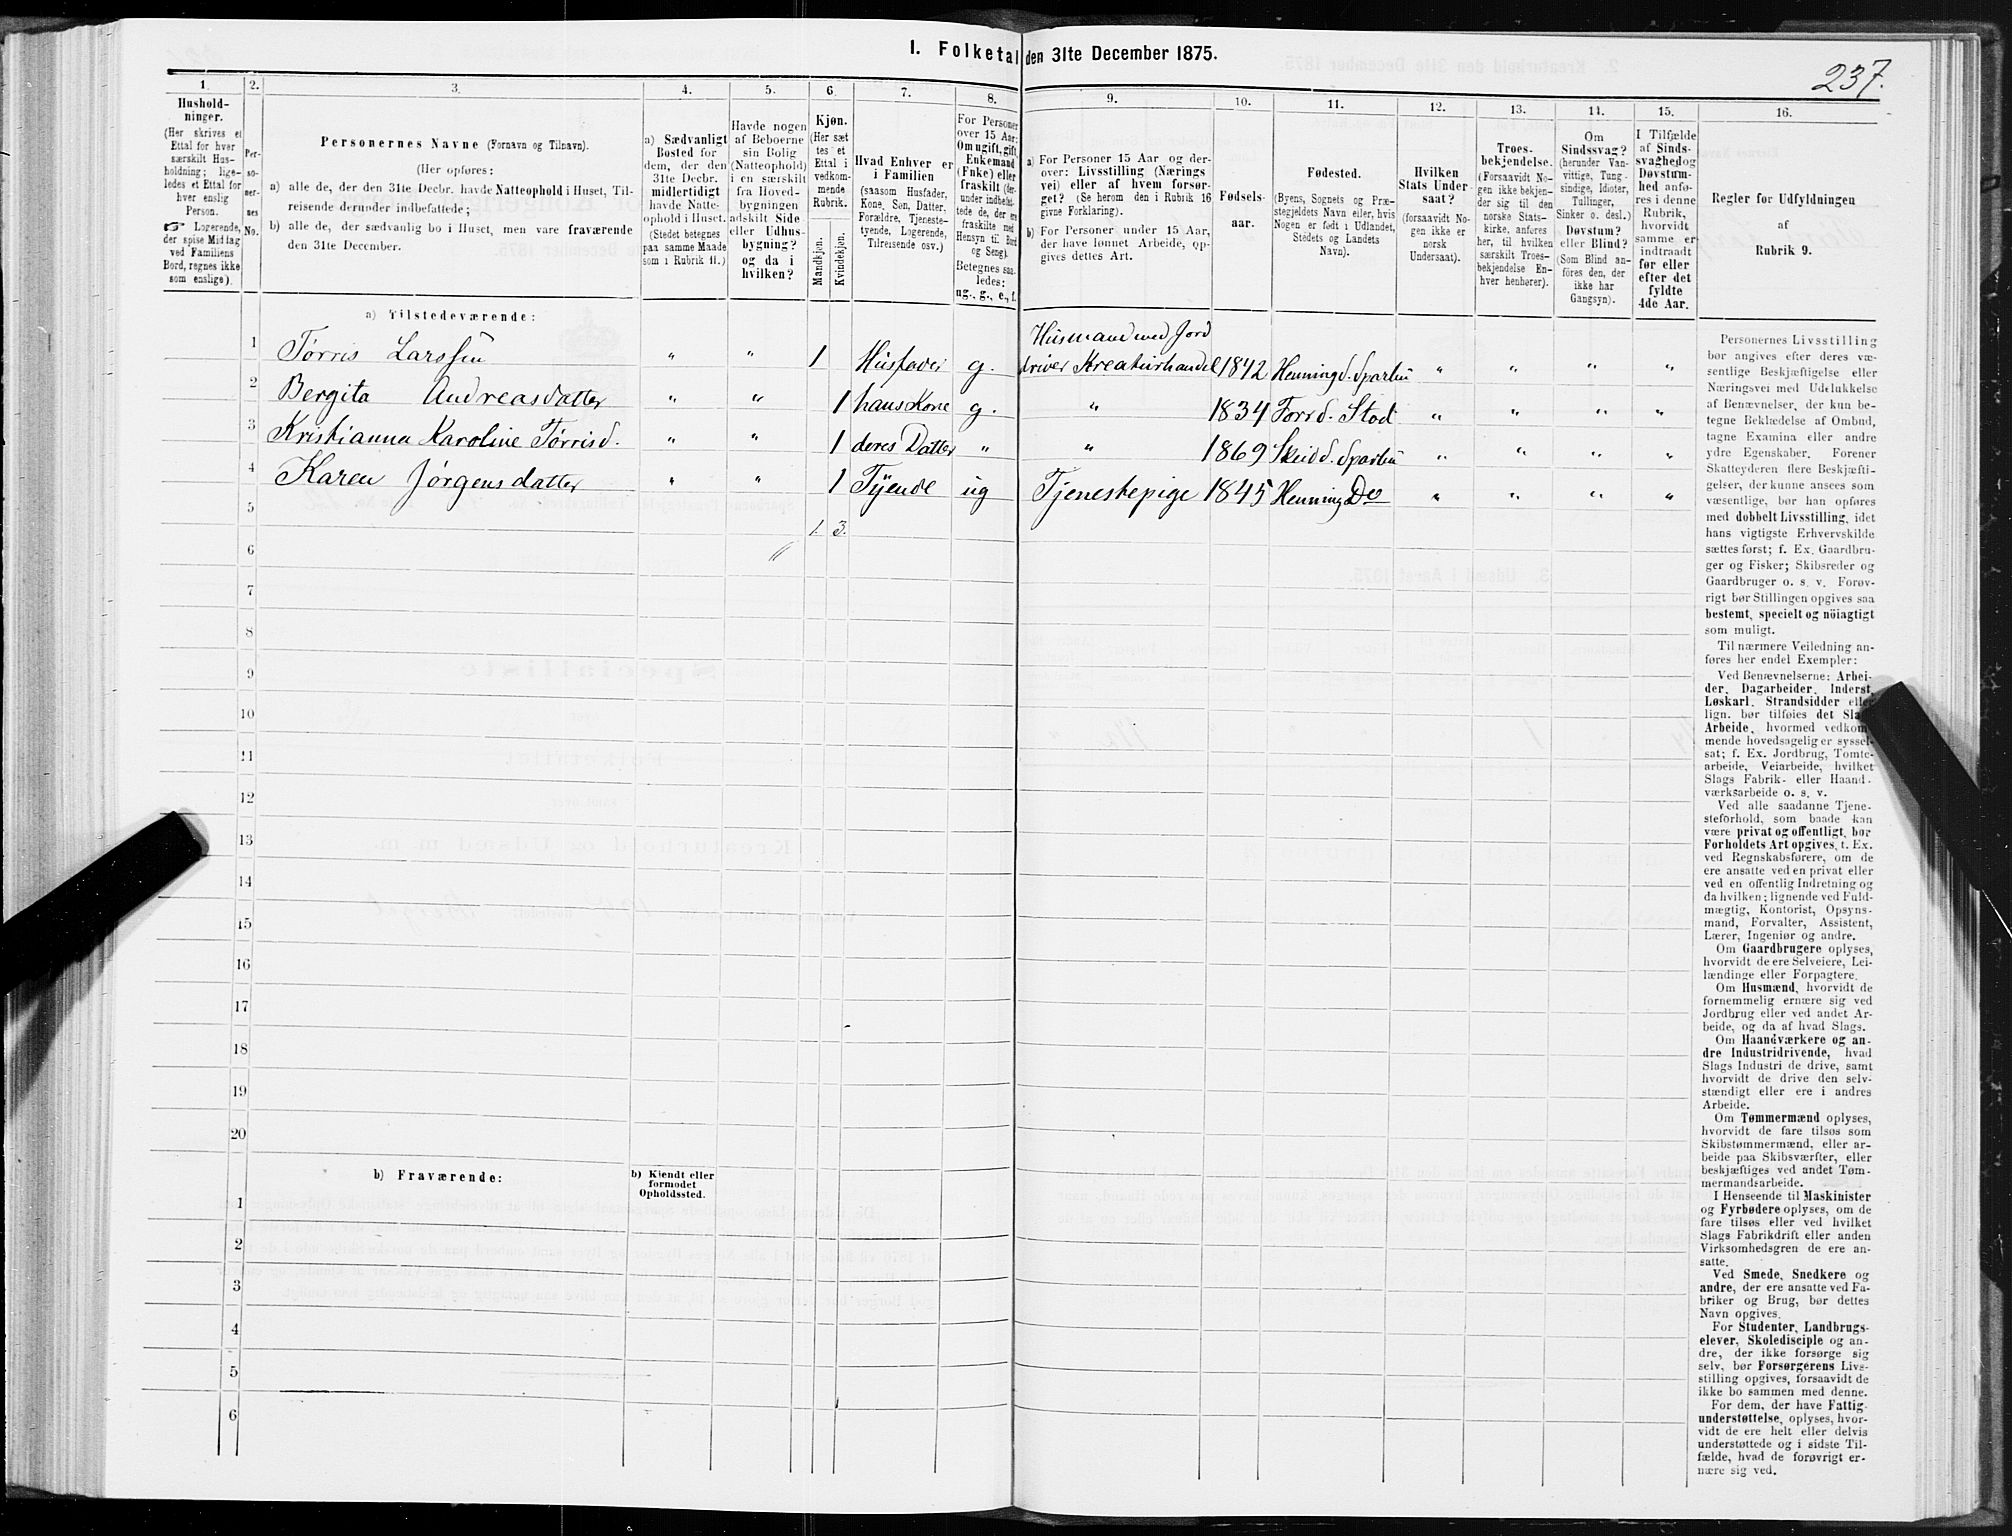 I. Folketal den 31te December 1875.
237.
1.
Hushold-
ninger.
(Her skrives et
Ettal for hver
særskilt Hus-
holdning; lige-
ledes et Ettal for
hver enslig
Person.
☞ Logerende,
der spise Middag
ved Familiens
Bord, regnes ikke
som enslige).
2.
Per-
so-
ner-
nes
No.
3.
Personernes Navne (Fornavn og Tilnavn).
(Her opføres:
a) alle de, der den 31te Decbr. havde Natteophold i Huset, Til-
reisende derunder indbefattede;
b) alle de, der sædvanlig bo i Huset, men vare fraværende
den 31te December.
4.
a) Sædvanligt
Bosted for
dem, der den
31te Decbr.
midlertidigt
havde Natte-
ophold i Huset.
(Stedet betegnes
paa samme Maade
som i Rubrik 11.)
5.
Havde nogen
af Beboerne
sin Bolig
(Natteophold)
i en særskilt
fra Hoved-
bygningen
adskilt Side-
eller Udhus-
bygning?
og da i
hvilken?
6.
Kjøn.
(Her sæt
tes et
Ettal i
vedkom-
mende
Rubrik.
Mandkjøn.
Kvindekjøn.
7.
Hvad Enhver er
i Familien
(saasom Husfader,
Kone, Søn, Datter,
Forældre, Tjeneste-
tyende, Logerende,
Tilreisende osv.)
8.
For Personer
over 15 Aar:
Om ugift, gift,
Enkemand
(Enke) eller
fraskilt (der-
under indbefat-
tede de, der ere
fraskilte med
Hensyn til Bord
og Seng).
Betegnes saa-
ledes:
ug., g., e., f.
9.
a) For Personer 15 Aar og der-
over: Livsstilling (Nærings
vei) eller af hvem forsør-
get? (Se herom den i Rubrik 16
givne Forklaring).
b) For Personer under 15 Aar,
der have lønnet Arbeide, op-
gives dettes Art.
10.
Fødsels-
aar.
11.
Fødested.
(Byens, Sognets og Præ-
stegjeldets Navn eller, hvis
Nogen er født i Udlandet,
Stedets og Landets
Navn).
12.
Hvilken
Stats Under-
saat?
(forsaavidt No-
gen ikke er
norsk
Undersaat).
13.
Troes-
bekjendelse.
(Forsaavidt No-
gen ikke bekjen-
der sig til den
norske Stats-
kirke, anføres
her, til hvilken
særskilt Troes-
bekjendelse En-
hver henhører).
14.
Om
Sindssvag?
(herunder Van-
vittige, Tung-
sindige, Idioter,
Tullinger,
Sinker o. desl.)
Døvstum?
eller Blind?
(Som Blind an-
føres den, der
ikke har
Gangsyn).
15.
I Tilfælde
af Sinds-
svaghed og
Døvstum-
hed anfø-
res i denne
Rubrik,
hvorvidt
samme er
indtraadt
før eller
efter det
fyldte
4de Aar.
16.
Regler for Udfyldningen
af
Rubrik 9.
a) Tilstedeværende:
Husmand med Jord
1 Tørris Larssen " " 1 Husfader g. driver Kreaturhandel 1842 Henning d. Sparbu " " " "
2 Bergita Andreasdatter " " 1 hans Kone g. " 1834 For d. Stod " " " "
3 Kristianna Karoline Tørrisd. " " 1 deres Datter " " 1869 Skeid d. Sparbu " " " "
4 Karen Jørgensdatter " " 1 Tyende ug Tjenestepige 1845 Henning Do " " " "
5 1. 3.
6
7
8
9
10
11
12
13
14
15
16
17
18
19
20
b) Fraværende:
b) Kjendt eller
formodet
Opholdssted.
1
2
3
4
5
6
Personernes Livsstilling
bør angives efter deres væ-
sentlige Beskjæftigelse eller
Næringsvei med Udelukkelse
af Benævnelser, der kun be-
tegne Beklædelse af Ombud,
tagne Examina eller andre
ydre Egenskaber. Forener
Skatteyderen flere Beskjæfti-
gelser, der kunne ansees som
væsentlige, bør han opføres
med dobbelt Livsstilling, idet
hans vigtigste Erhvervskilde
sættes først; f. Ex. Gaardbru-
ger og Fisker; Skibsreder og
Gaardbruger o. s. v. Forøv-
rigt bør Stillingen opgives saa
bestemt, specielt og nöiagtigt
som muligt.
Til nærmere Veiledning an-
føres her endel Exempler:
Ved Benævnelserne: Arbei-
der, Dagarbeider, Inderst,
Løskarl, Strandsidder eller
lign. bør tilføies det Slags
Arbeide, hvormed vedkom-
mende hovedsagelig er syssel-
sat; f. Ex. Jordbrug, Tomte-
arbeide, Veiarbeide, hvilket
Slags Fabrik- eller Haand-
værksarbeide o. s. v.
Ved alle saadanne Tjene-
steforhold, som baade kan
være privat og offentligt, bør
Forholdets Art opgives, t. Ex.
ved Regnskabsførere, om de
ere ansatte ved en privat eller
ved en offentlig Indretning og
da hvilken; lignende ved Fuld-
mægtig, Kontorist, Opsyns-
mand, Forvalter, Assistent,
Lærer, Ingeniør og andre.
Om Gaardbrugere oplyses,
hvorvidt de ere Selveiere, Lei-
lændinge eller Forpagtere.
Om Husmænd, hvorvidt de
fornemmelig ernære sig ved
Jordbrug eller ved andet Ar-
beide, og da af hvad Slags.
Om Haandværkere og an-
dre Industridrivende, hvad
Slags Industri de drive, samt
hvorvidt de drive den selv-
stændigt eller ere i andres
Arbeide.
Om Tømmermænd oplyses,
hvorvidt de fare tilsøs som
Skibstømmermænd, eller ar-
beide paa Skibsværfter, eller
beskjæftiges ved andet Tøm-
mermandsarbeide.
I Henseende til Maskinister
og Fyrbødere oplyses, om de
fare tilsøs eller ved hvilket
Slags Fabrikdrift eller anden
Virksomhedsgren de ere an-
satte.
Ved Smede, Snedkere og
andre, der ere ansatte ved Fa-
briker og Brug, bør dettes
Navn opgives.
For Studenter, Landbrugs-
elever, Skoledisciple og an-
dre, der ikke forsørge sig
selv, bør Forsørgerens Livs-
stilling opgives, forsaavidt de
ikke bo sammen med denne.
For dem, der have Fattig-
understøttelse, oplyses, hvor-
vidt de ere helt eller delvis
understøttede og i sidste Til-
fælde, hvad de forøvrigt er-
nære sig ved.